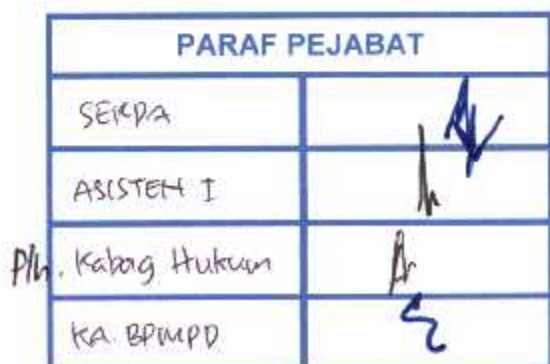 PARAF PEJABAT
SEKDA
ASISTEN I
Plh. Kabag Hukum
KA. BPMPD